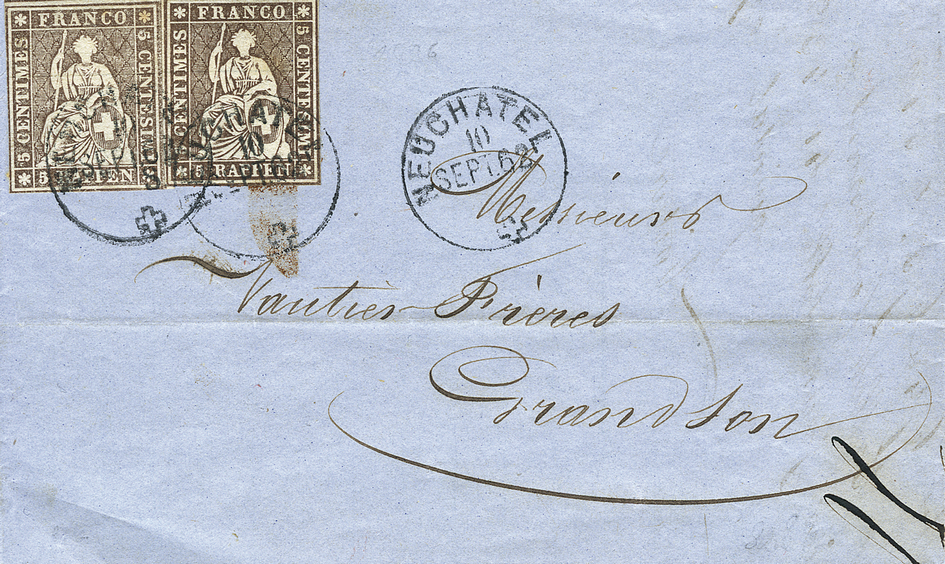 FRANCO FRANCO
5 CENTIMES 5 CENTESIMI 5 CENTIMES 5 CENTESIMI
5 RAPPEN 5 RAPPEN
NEUCHATEL
10
SEPT. 62
Messieurs
Vautier Frères
Grandson